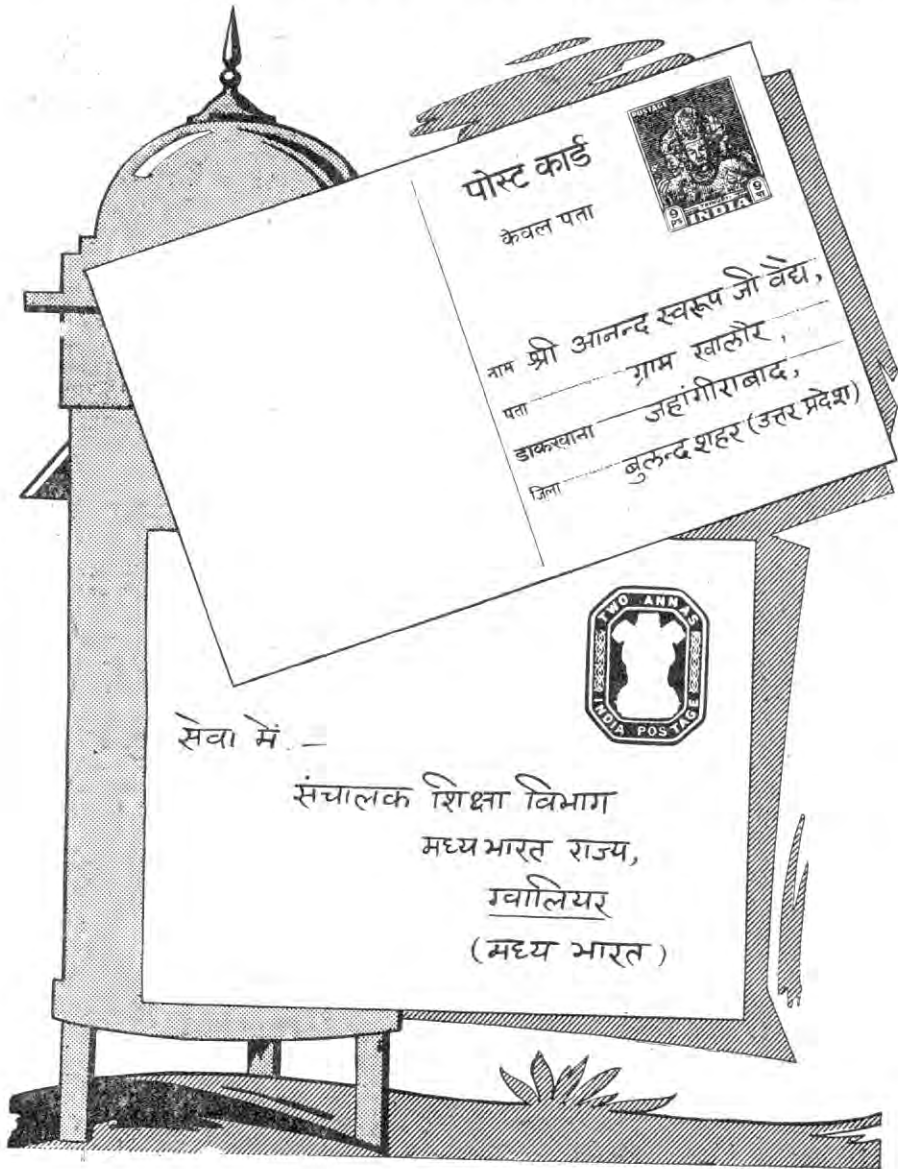 पोस्ट कार्ड
केवल पता
POSTAGE
9 PS
9 पा
INDIA
नाम श्री आनन्द स्वरूप जी वैद्य,
पता ग्राम खालौर,
डाकखाना जहांगीराबाद,
जिला बुलन्द शहर (उत्तर प्रदेश)
TWO ANNAS
INDIA POSTAGE
सेवा में –
संचालक शिक्षा विभाग
मध्य भारत राज्य,
ग्वालियर
(मध्य भारत)